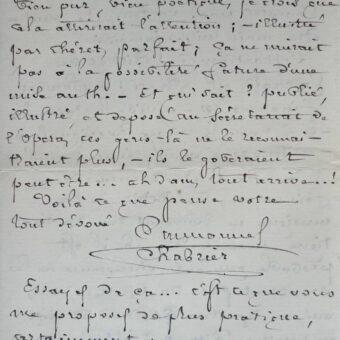 bien pur, bien poétique, je crois que
cela attirerait l'attention ; – illustré
par Chéret, parfait ; ça ne nuirait
pas à la possibilité future d'une
mise au th. – Et qui sait ? publié,
illustré, et déposé au secrétariat de
l'Opéra, ces gens-là ne le reconnaî-
traient plus, – ils le goberaient
peut être... ah dam, tout arrive...!
Voilà ce que pense votre
tout dévoué Emmanuel
Chabrier
Essayez de ça... c'est ce que vous
me proposez de plus pratique,
certainement